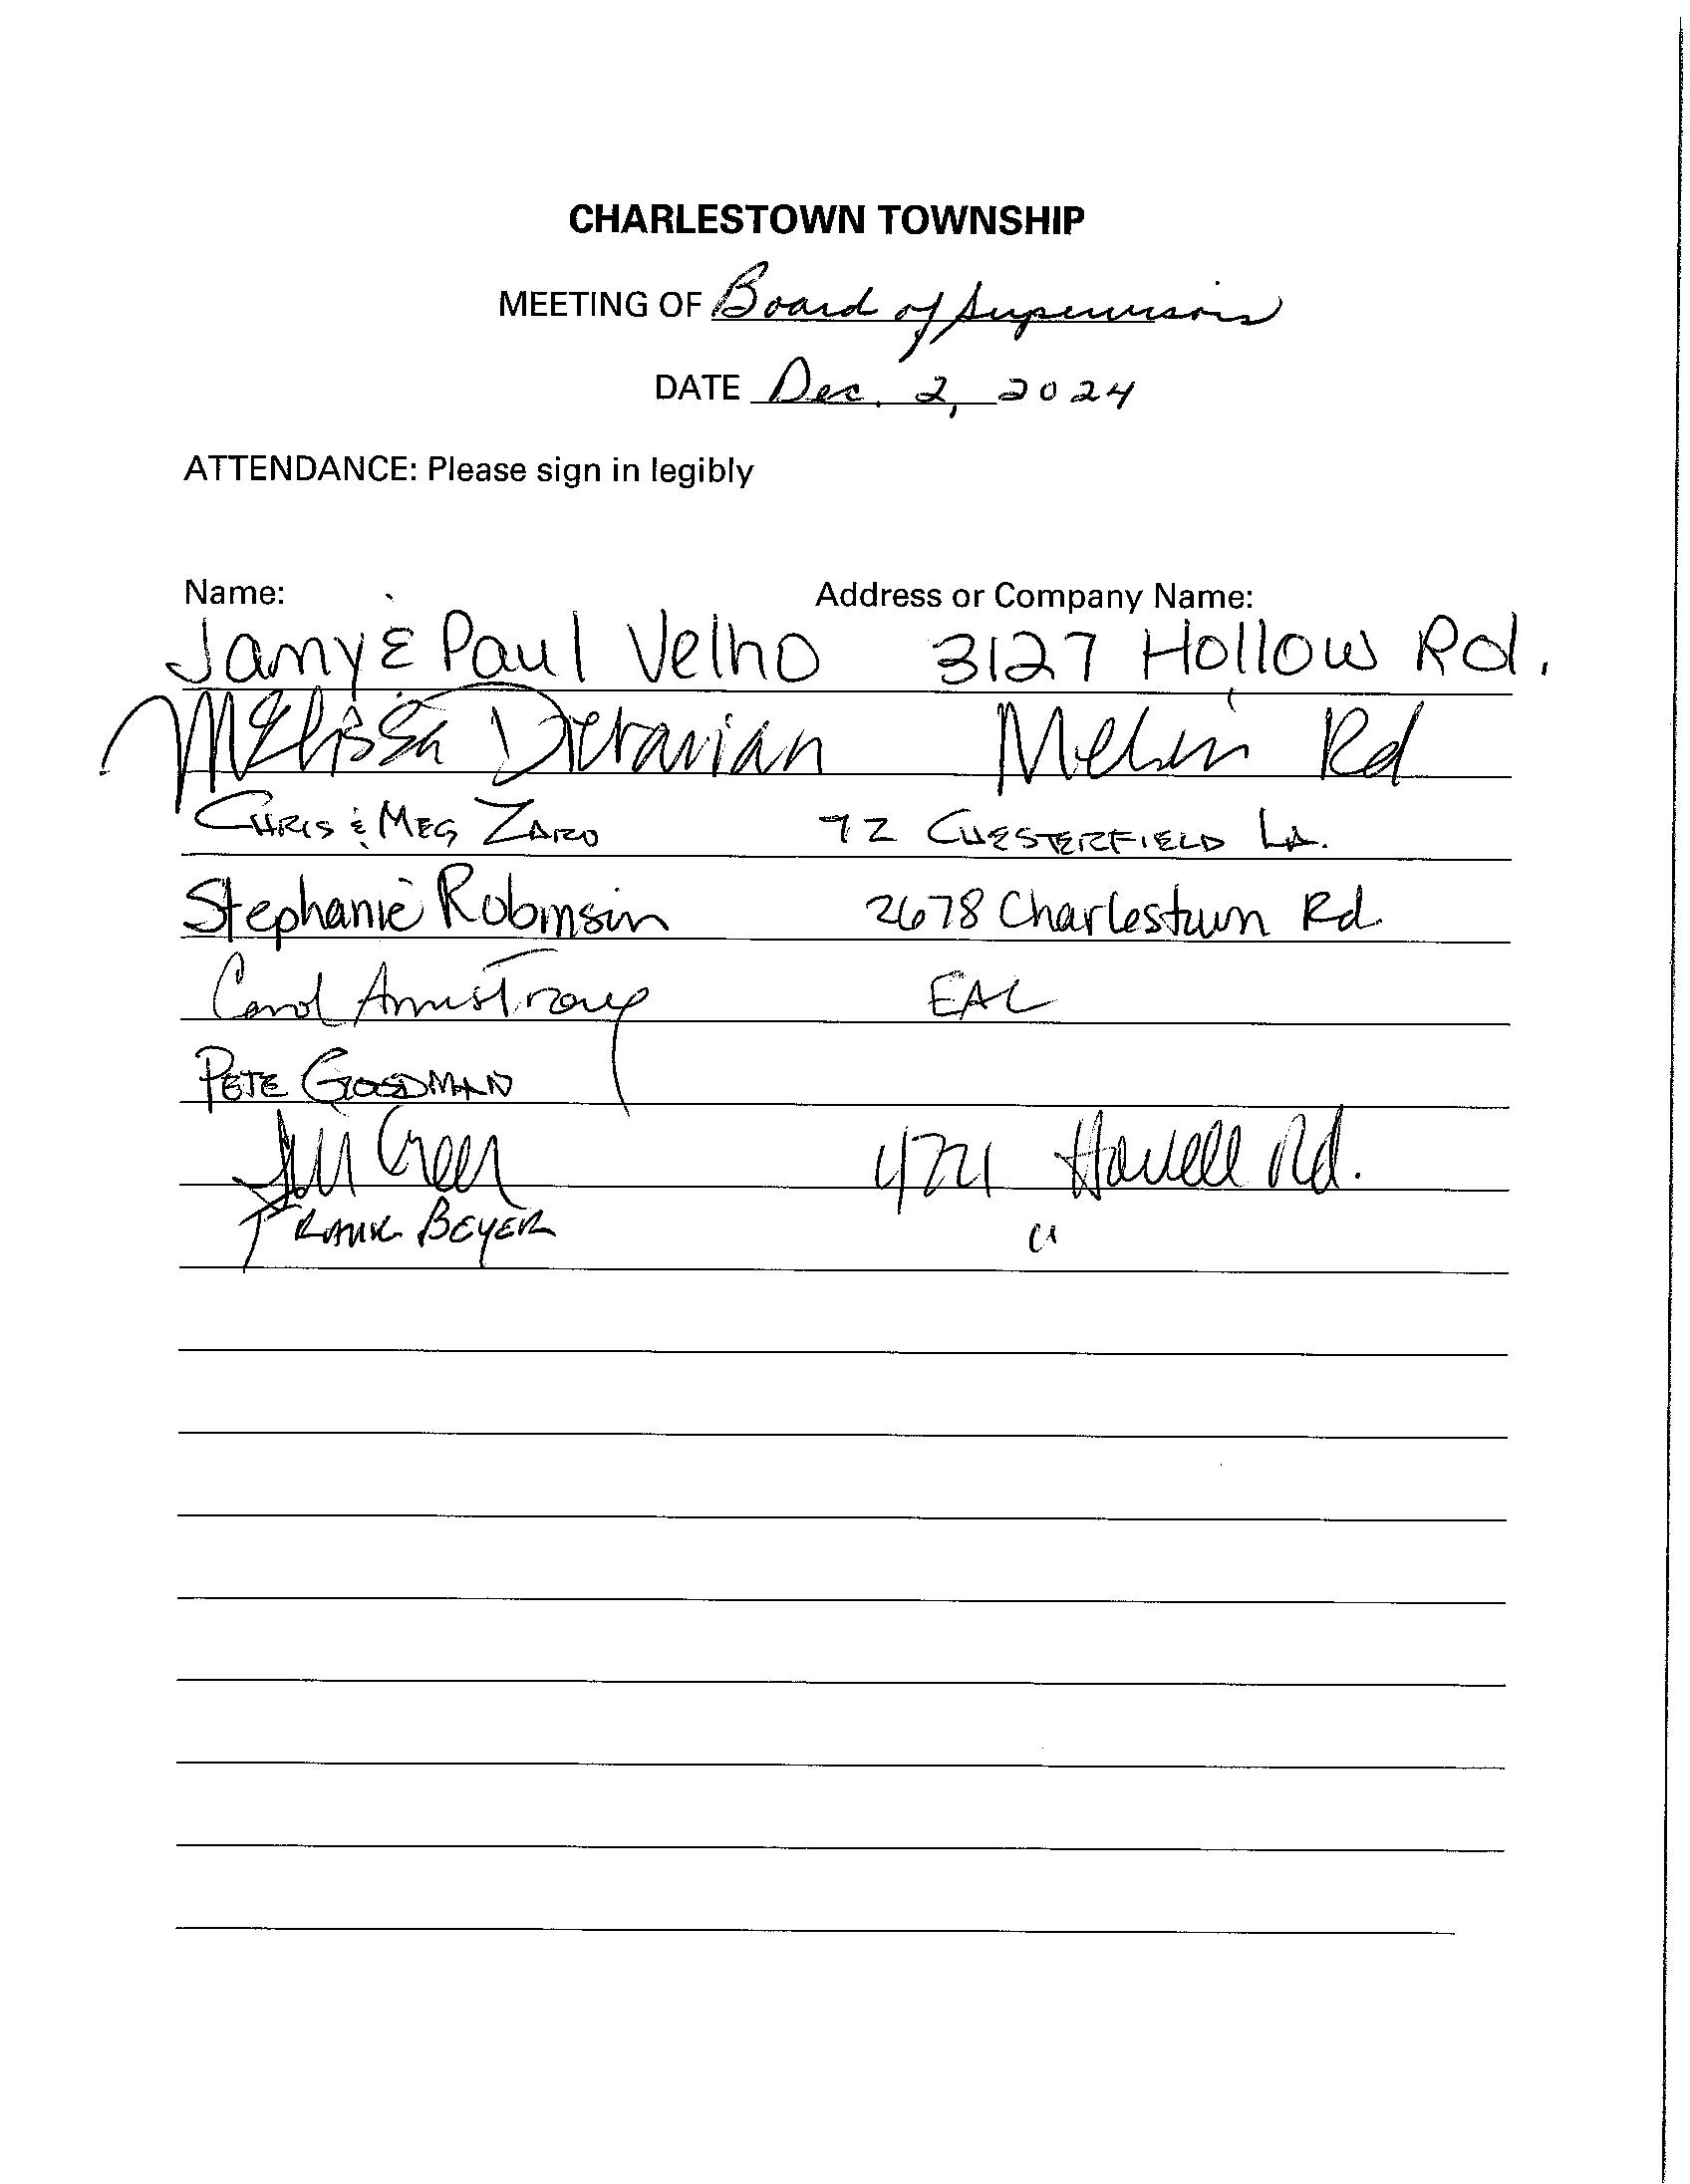 CHARLESTOWN TOWNSHIP
MEETING OF Board of Supervisors
DATE Dec. 2, 2024
ATTENDANCE: Please sign in legibly
Name: Address or Company Name:
Jamy & Paul Velho 3127 Hollow Rd.
Melissa Rd
CHRIS & MEG ZARO 72 CHESTERFIELD LN.
Stephanie Robinson 2678 Charlestown Rd.
Carol Armstrong EAC
PETE GOODMAN
4721 Howell Rd.
FRANK BEYER "